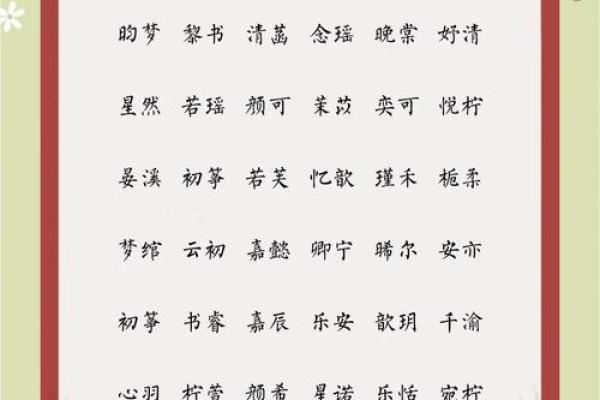 昀梦 黎书 清菡 念瑶 晚棠 妤清
星然 若瑶 颜可 茉苡 奕可 悦柠
晏溪 初筝 若芙 忆歆 瑾禾 栀柔
梦绾 云初 嘉懿 卿宁 晞尔 安亦
初筝 书睿 嘉辰 乐安 歆玥 千渝
心羽 柠萱 颜希 星诺 乐恬 宛柠